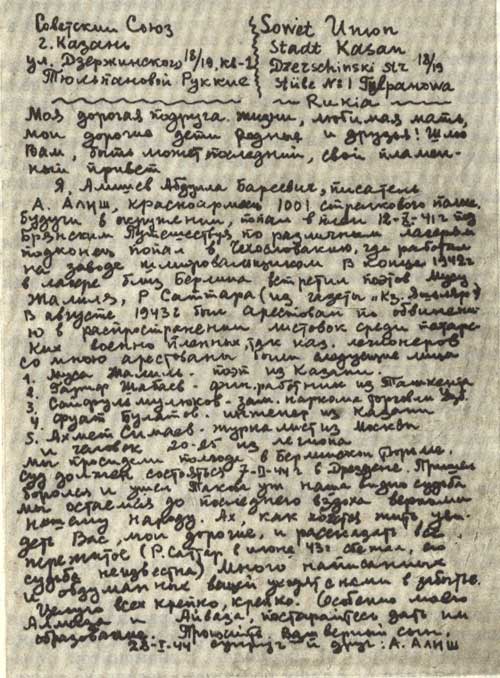 Советский Союз
г. Казань
ул. Дзержинского 18/19, кв-1
Тюльпановой Руккие
Sowet Union
Stadt Kasan
Dzerschinski str 18/19
Stübe № 1 Tulpanowa
Rukia
Моя дорогая подруга жизни, любимая мать,
мои дорогие дети родные и друзья! Шлю
Вам, быть может последний, свой пламен-
ный привет
Я, Алишев Абдулла Бареевич, писатель
А. Алиш, красноармеец 1001 стрелкового полка,
будучи в окружении, попал в плен 12-X-41г под
Брянском Путешествуя по различным лагерям
подконец попал в Чехословакию, где работал
на заводе шлифовальщиком В конце 1942г
в лагере близ Берлина встретил поэтов Мусу
Жалиля, Р Саттара (из газеты „Кз. Яшьляр")
В августе 1943г был арестован по обвинени
ю в распространении листовок среди татарс-
ких военно пленных, так наз. легионеров
со мною арестованы были следующие лица
1. Муса Жалиль - поэт из Казани.
2. Гайнар - фин. работник из Ташкента
3. Сайфульмулюков - зам. наркома торговли
4. Фуат Булатов - инженер из Казани
5. Ахмет Симаев - журналист из Москвы
и человек 20-25 из легиона
мы просидели полгода в Берлинской тюрьме.
суд должен состояться 7-II-44г в Дрездене.
боролся и Такова уж наша видно судьба
мы остаемся до последнего вздоха верными
нашему народу. Ах, как хочется жить, уви-
деть Вас, мои дорогие, и рассказать все
пережитое (Р. Саттар в июне 43г сбежал, его
судьба неизвестна) Много написанных
и обдуманных вещей уходят с нами в забыть.
Целую всех крепко, крепко. (Особенно моего
Алмаза и Айваза, постарайтесь дать им
образование. Ваш верный сын,
28-I-44 супруг и друг: А. Алиш